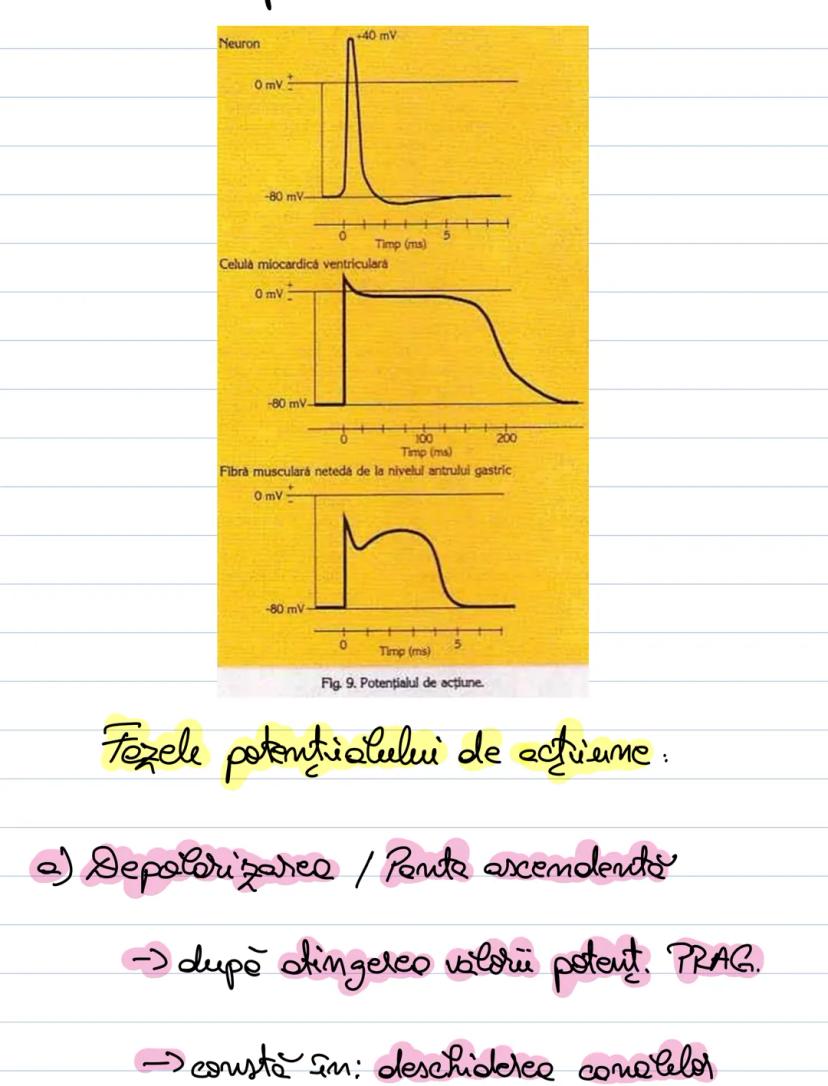 Neuron
+40 mV
0 mV
-80 mV
0 5
Timp (ms)
Celulă miocardică ventriculară
0 mV
-80 mV
0 100 200
Timp (ms)
Fibră musculară netedă de la nivelul antrului gastric
0 mV
-80 mV
0 5
Timp (ms)
Fig. 9. Potențialul de acțiune.
Fazele potențialului de acțiune:
a) Depolarizarea / Panta ascendentă
-> după atingerea valorii potenț. PRAG.
-> constă în: deschiderea canalelor